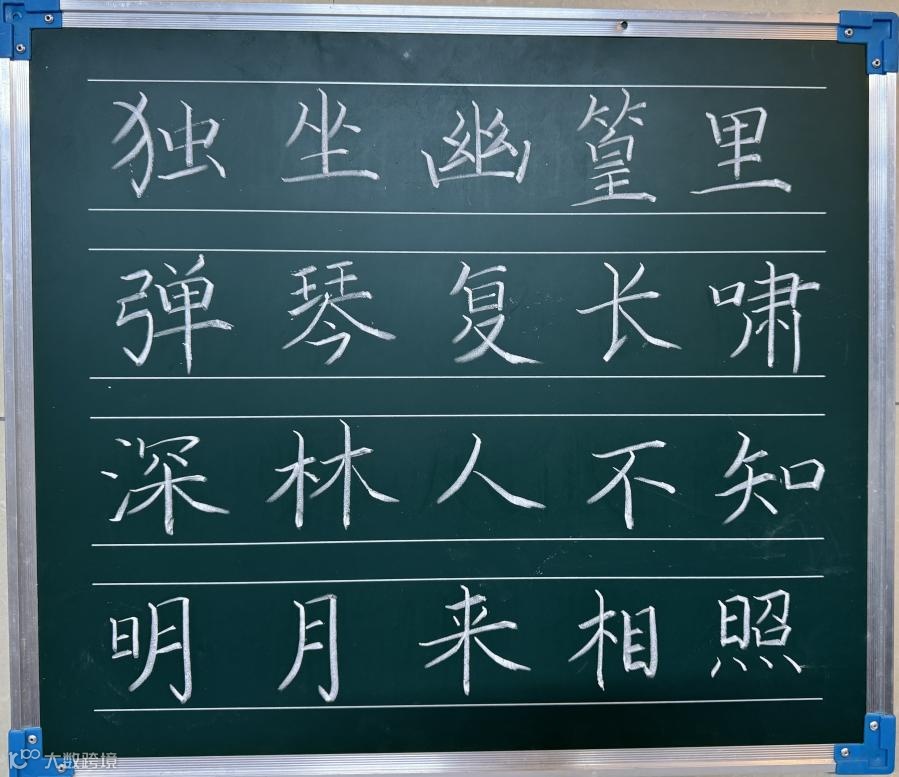 独坐幽篁里
弹琴复长啸
深林人不知
明月来相照
大数跨境